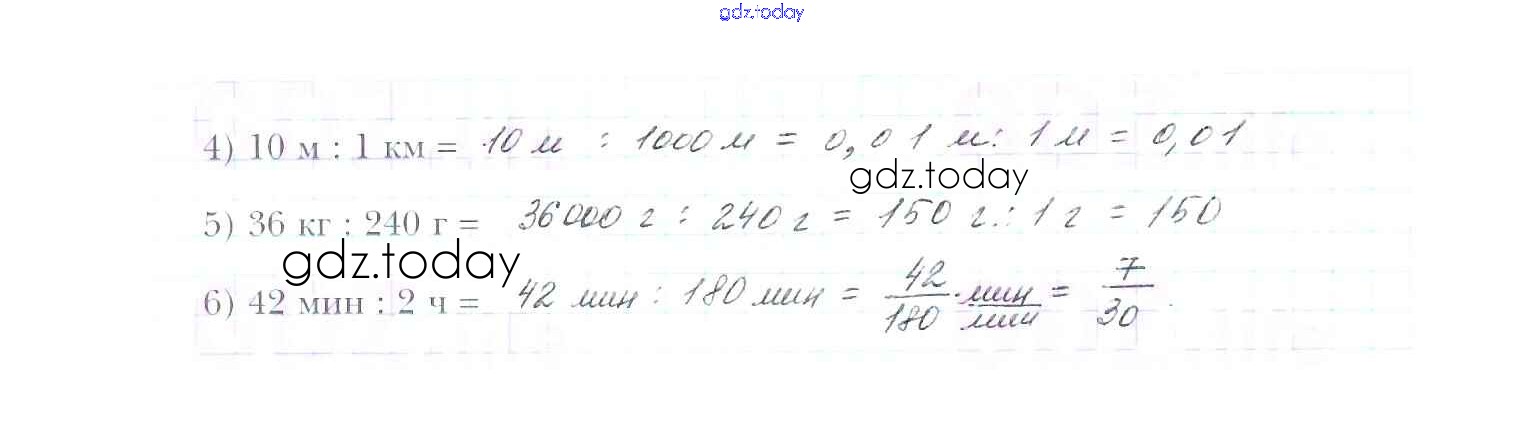 gdz.today
4) 10 м : 1 км = 10 м : 1000 м = 0,01 м : 1 м = 0,01
gdz.today
5) 36 кг : 240 г = 36000 г : 240 г = 150 г : 1 г = 150
gdz.today
6) 42 мин : 2 ч = 42 мин : 180 мин = 42/180 · мин/мин = 7/30